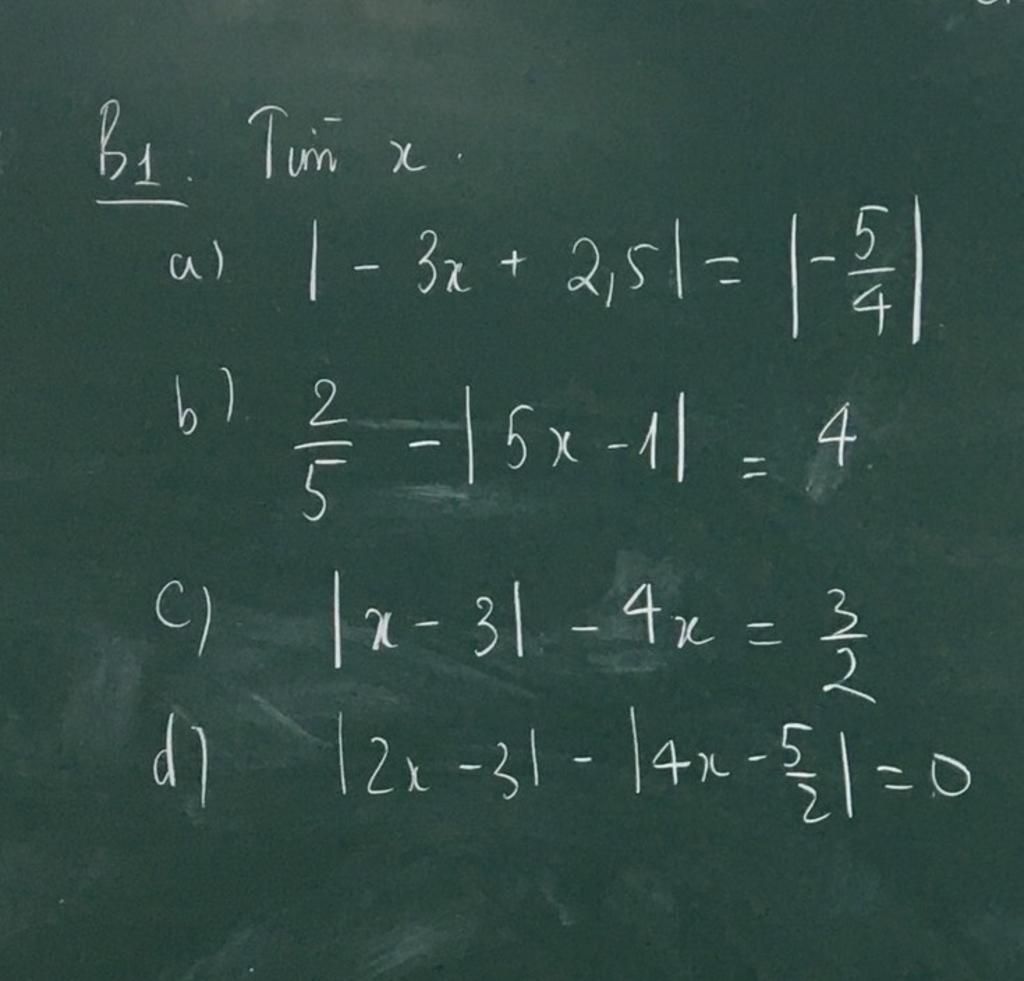 B1. Tìm x.
a) |-3x + 2,5| = |-5/4|
b) 2/5 - |5x - 1| = 4
c) |x - 3| - 4x = 3/2
d) |2x - 3| - |4x - 5/2| = 0